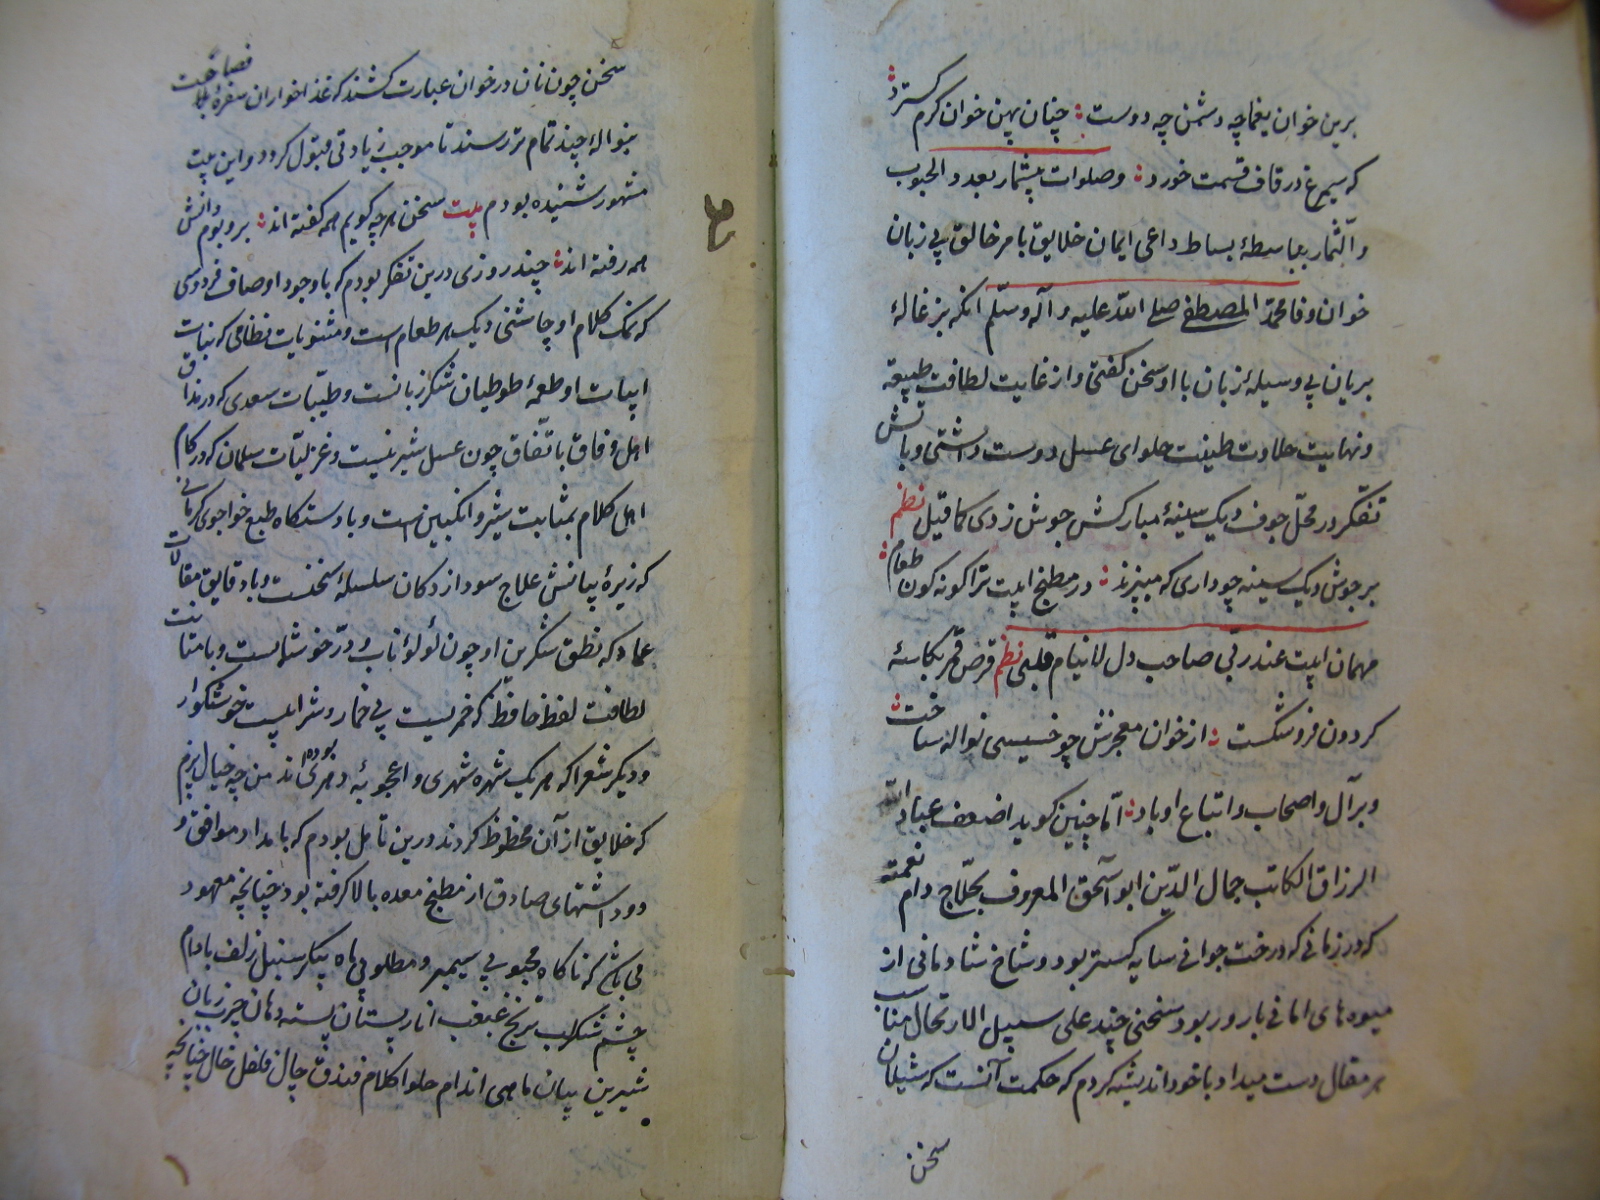 برین خوان یغما چه دشمن چه دوست ؛ چنان پهن خوان کرم گسترد
که سیمرغ در قاف قسمت خورد ؛ وصلوات بیشمار بعدد الحبوب
والثمار بباسطهٔ بساط داعی ایمان خلایق بامر خالق بی زبان
خوان وفا محمّد المصطفی صلی الله علیه وآله وسلّم انکه بزغالهٔ
بریان بی وسیلهٔ زبان با او سخن کفتی و از غایت لطافت طبیعت
ونهایت حلاوت طینت حلوای عسل دوست داشتی و باتش
تفکر در محل جوف دیک سینهٔ مبارکش جوش زدی کما قیل نظم
بر جوش دیک سینه چو داری که میپزند ؛ در مطبخ ابیت ترا کونه کون طعام
مهمان ابیت عند ربّی صاحب دل لاینام قلبی نظم قرص قمر بکاسهٔ
کردون فرو شکست ؛ از خوان معجزش چو خسیسی نواله ساخت
و بر آل و اصحاب و اتباع او باد ؛ امّا چنین کوید اضعف عباد الله
الرزاق الکاتب جمال الدّین ابو اسحق المعروف بحلّاج دام نعمته
که در زمانی که درخت جوانی سایه کستر بود و شاخ شادمانی از
میوه های امانی بارور بود سخنی چند علی سبیل الارتحال مناسب
هر مقال دست میداد با خود اندیشه کردم که حکمت آنست که شیلان
سخن
سخن چون نان در خوان عبارت کشند که غذا خواران سفرهٔ بلا فصاحت
بنوالهٔ چند تمام تر رسند تا موجب زیادتی قبول کردد و این بیت
مشهور شنیده بودم بیت سخن هر چه کویم همه کفته اند ؛ بر و بوم دانش
همه رفته اند ؛ چند روزی درین تفکر بودم که با وجود اوصاف فردوسی
که نمک کلام او چاشنی دیک هر طعام است و مثنویات نظامی که نبات
ابیات او طعمهٔ طوطیان شکر زبانست و طیّبات سعدی که در مذاق
اهل وفاق باتّفاق چون عسل شیرینست و غزلیّات سلمان که در کام
اهل کلام بمثابت شیر و انکبین است و با دستکاه طبع خواجوی کرمانی
که زیرهٔ بیانش علاج سودا زدکان سلسلهٔ سخنست و با دقایق مقالات
عماد که نطق شکرین او چون لؤلؤ ناب و درّ خوشابست و با متانت
لطافت لفظ حافظ که خمریست بی خمار و شرابیست خوشکوار
و دیکر شعرا که هر یک شهرهٔ شهری و اعجوبهٔ دهری بوده اند من چه خیال پزم
که خلایق از آن محظوظ کردند درین تامل بودم که بامداد موافق و
دود اشتهای صادق از مطبخ معده بالا کرفته بود چنانچه معهود
می باشد که ناکاه محبوبی سیمبر و مطلوبی ماه پیکر سنبل زلف بادام
چشم شکر لب ترنج غبغب انار پستان پسته دهان چرب زبان
شیرین بیان ماهی اندام حلوا کلام فندق چال فلفل خال چنانچه